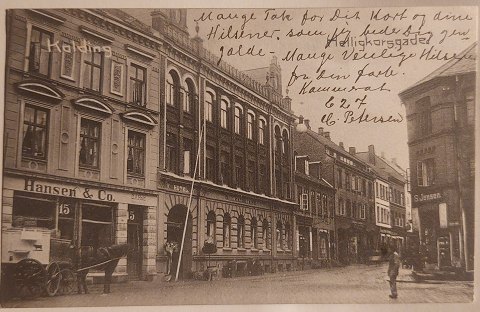 Kolding
Helligkorsgade
Mange Tak for Dit Kort og dine
Hilsener, som jeg bede Dig gen-
gælde.
Mange Venlige Hilsner
fra din forb.
Kammerat
C. Petersen
Hansen & Co.
15
15
HOTEL
S. Jensen